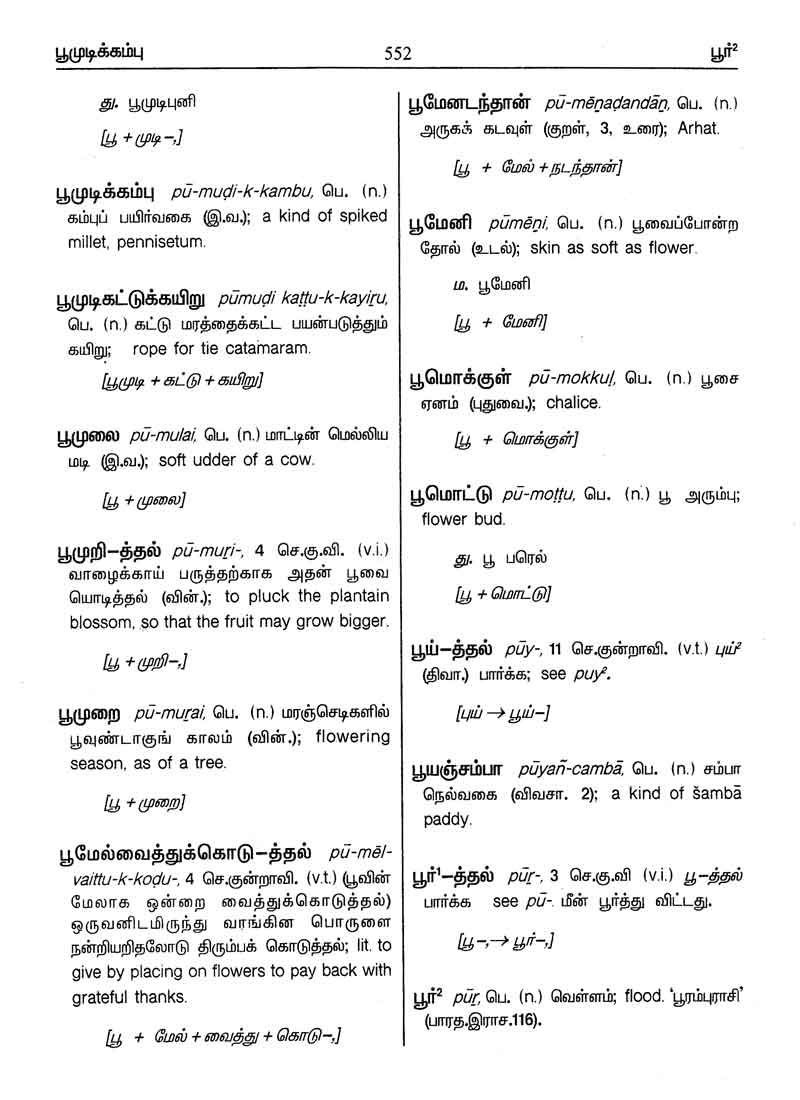 பூமுடிக்கம்பு 552 பூர்²
து. பூமுடிபுனி
[பூ +முடி–,]
பூமுடிக்கம்பு pū-muḍi-k-kambu, பெ. (n.)
கம்புப் பயிர்வகை (இ.வ.); a kind of spiked
millet, pennisetum.
பூமுடிகட்டுக்கயிறு pūmuḍi kaṭṭu-k-kayiṟu,
பெ. (n.) கட்டு மரத்தைக்கட்ட பயன்படுத்தும்
கயிறு; rope for tie catamaram.
[பூமுடி + கட்டு + கயிறு]
பூமுலை pū-mulai, பெ. (n.) மாட்டின் மெல்லிய
மடி (இ.வ.); soft udder of a cow.
[பூ +முலை]
பூமுறி–த்தல் pū-muṟi-, 4 செ.கு.வி. (v.i.)
வாழைக்காய் பருத்தற்காக அதன் பூவை
யொடித்தல் (வின்.); to pluck the plantain
blossom, so that the fruit may grow bigger.
[பூ +முறி–,]
பூமுறை pū-muṟai, பெ. (n.) மரஞ்செடிகளில்
பூவுண்டாகுங் காலம் (வின்.); flowering
season, as of a tree.
[பூ +முறை]
பூமேல்வைத்துக்கொடு–த்தல் pū-mēl-
vaittu-k-koḍu-, 4 செ.குன்றாவி. (v.t.) (பூவின்
மேலாக ஒன்றை வைத்துக்கொடுத்தல்)
ஒருவனிடமிருந்து வாங்கின பொருளை
நன்றியறிதலோடு திரும்பக் கொடுத்தல்; lit. to
give by placing on flowers to pay back with
grateful thanks.
[பூ + மேல் + வைத்து + கொடு–,]
பூமேனடந்தான் pū-mēṉaḍandāṉ, பெ. (n.)
அருகக் கடவுள் (குறள், 3, உரை); Arhat.
[பூ + மேல் +நடந்தான்]
பூமேனி pūmēṉi, பெ. (n.) பூவைப்போன்ற
தோல் (உடல்); skin as soft as flower.
ம. பூமேனி
[பூ + மேனி]
பூமொக்குள் pū-mokkuḷ, பெ. (n.) பூசை
ஏனம் (புதுவை.); chalice.
[பூ + மொக்குள்]
பூமொட்டு pū-moṭṭu, பெ. (n.) பூ அரும்பு;
flower bud.
து. பூ பரெல்
[பூ +மொட்டு]
பூய்–த்தல் pūy-, 11 செ.குன்றாவி. (v.t.) புய்²
(திவா.) பார்க்க; see puy².
[புய் → பூய்–]
பூயஞ்சம்பா pūyañ-cambā, பெ. (n.) சம்பா
நெல்வகை (விவசா. 2); a kind of šambā
paddy.
பூர்¹–த்தல் pūṟ-, 3 செ.கு.வி (v.i.) பூ–த்தல்
பார்க்க see pū-. மீன் பூர்த்து விட்டது.
[பூ–,→ பூர்–,]
பூர்² pūṟ, பெ. (n.) வெள்ளம்; flood. ‘பூரம்புராசி’
(பாரத.இராச.116).